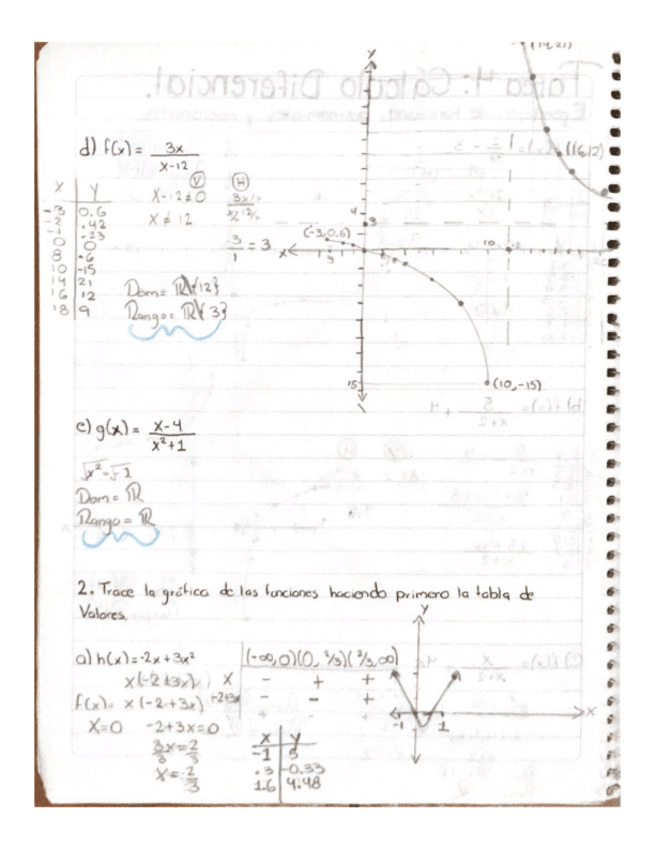 (14,21)
d) f(x) = 3x
x-12
(11612)
X Y
-3 0.6
-2 .42
-1 -23
0 0
8 -6
10 -15
14 21
16 12
18 9
V
X-12≠0
X ≠ 12
H
3x/x
x/x 12/x
3/1 = 3
Dom = ℝ\{12}
Rango = ℝ\{3}
Y
4
3
(-3,0.6)
X
-3
10
12
15
(10,-15)
e) g(x) = x-4
x²+1
√x² = √-1
Dom = ℝ
Rango = ℝ
2. Trace la gráfica de las funciones haciendo primero la tabla de
Valores.
a) h(x) = -2x + 3x²
x(-2+3x)
f(x) = x(-2+3x)
X=0 -2+3x=0
3x/3 = 2/3
X = 2/3
(-∞,0)(0, 2/3)(2/3,∞)
X - + +
-2+3x - - +
+ - +
X Y
-1 5
.3 -0.33
1.6 4.48
Y
X
-1 1